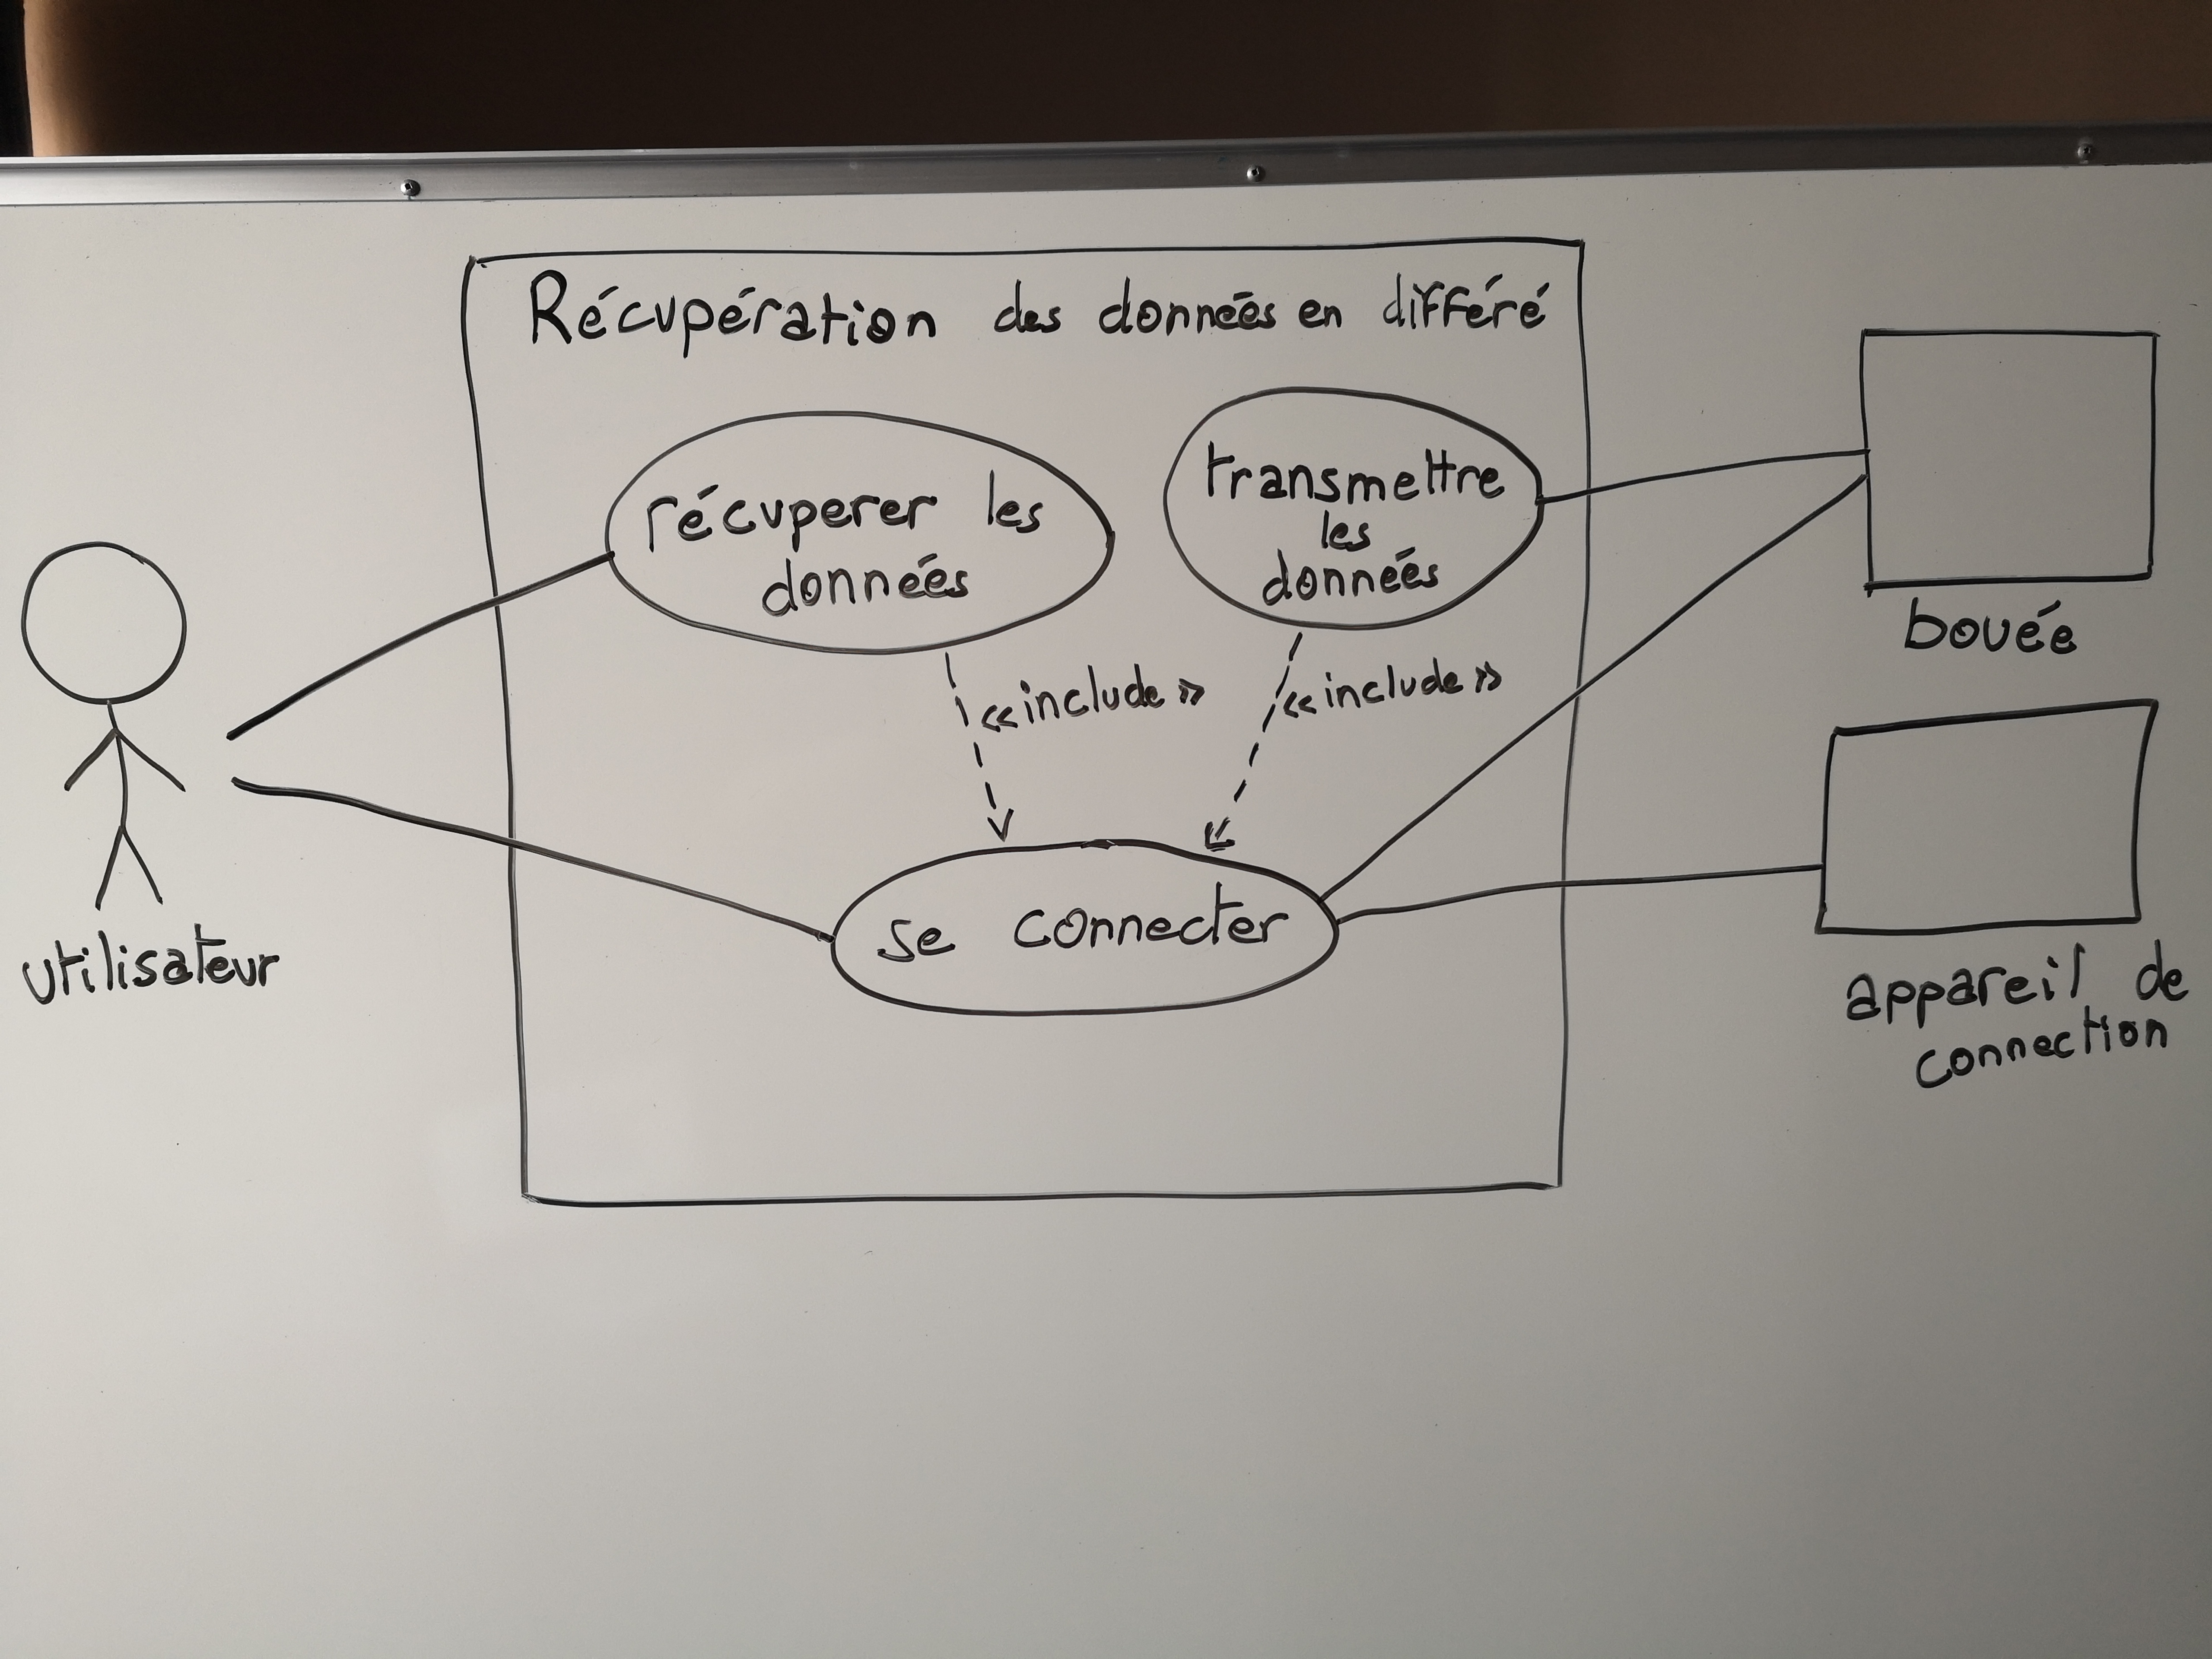 Récupération des données en différé
récuperer les
données
transmettre
les
données
«include»
«include»
se connecter
utilisateur
bouée
appareil de
connection